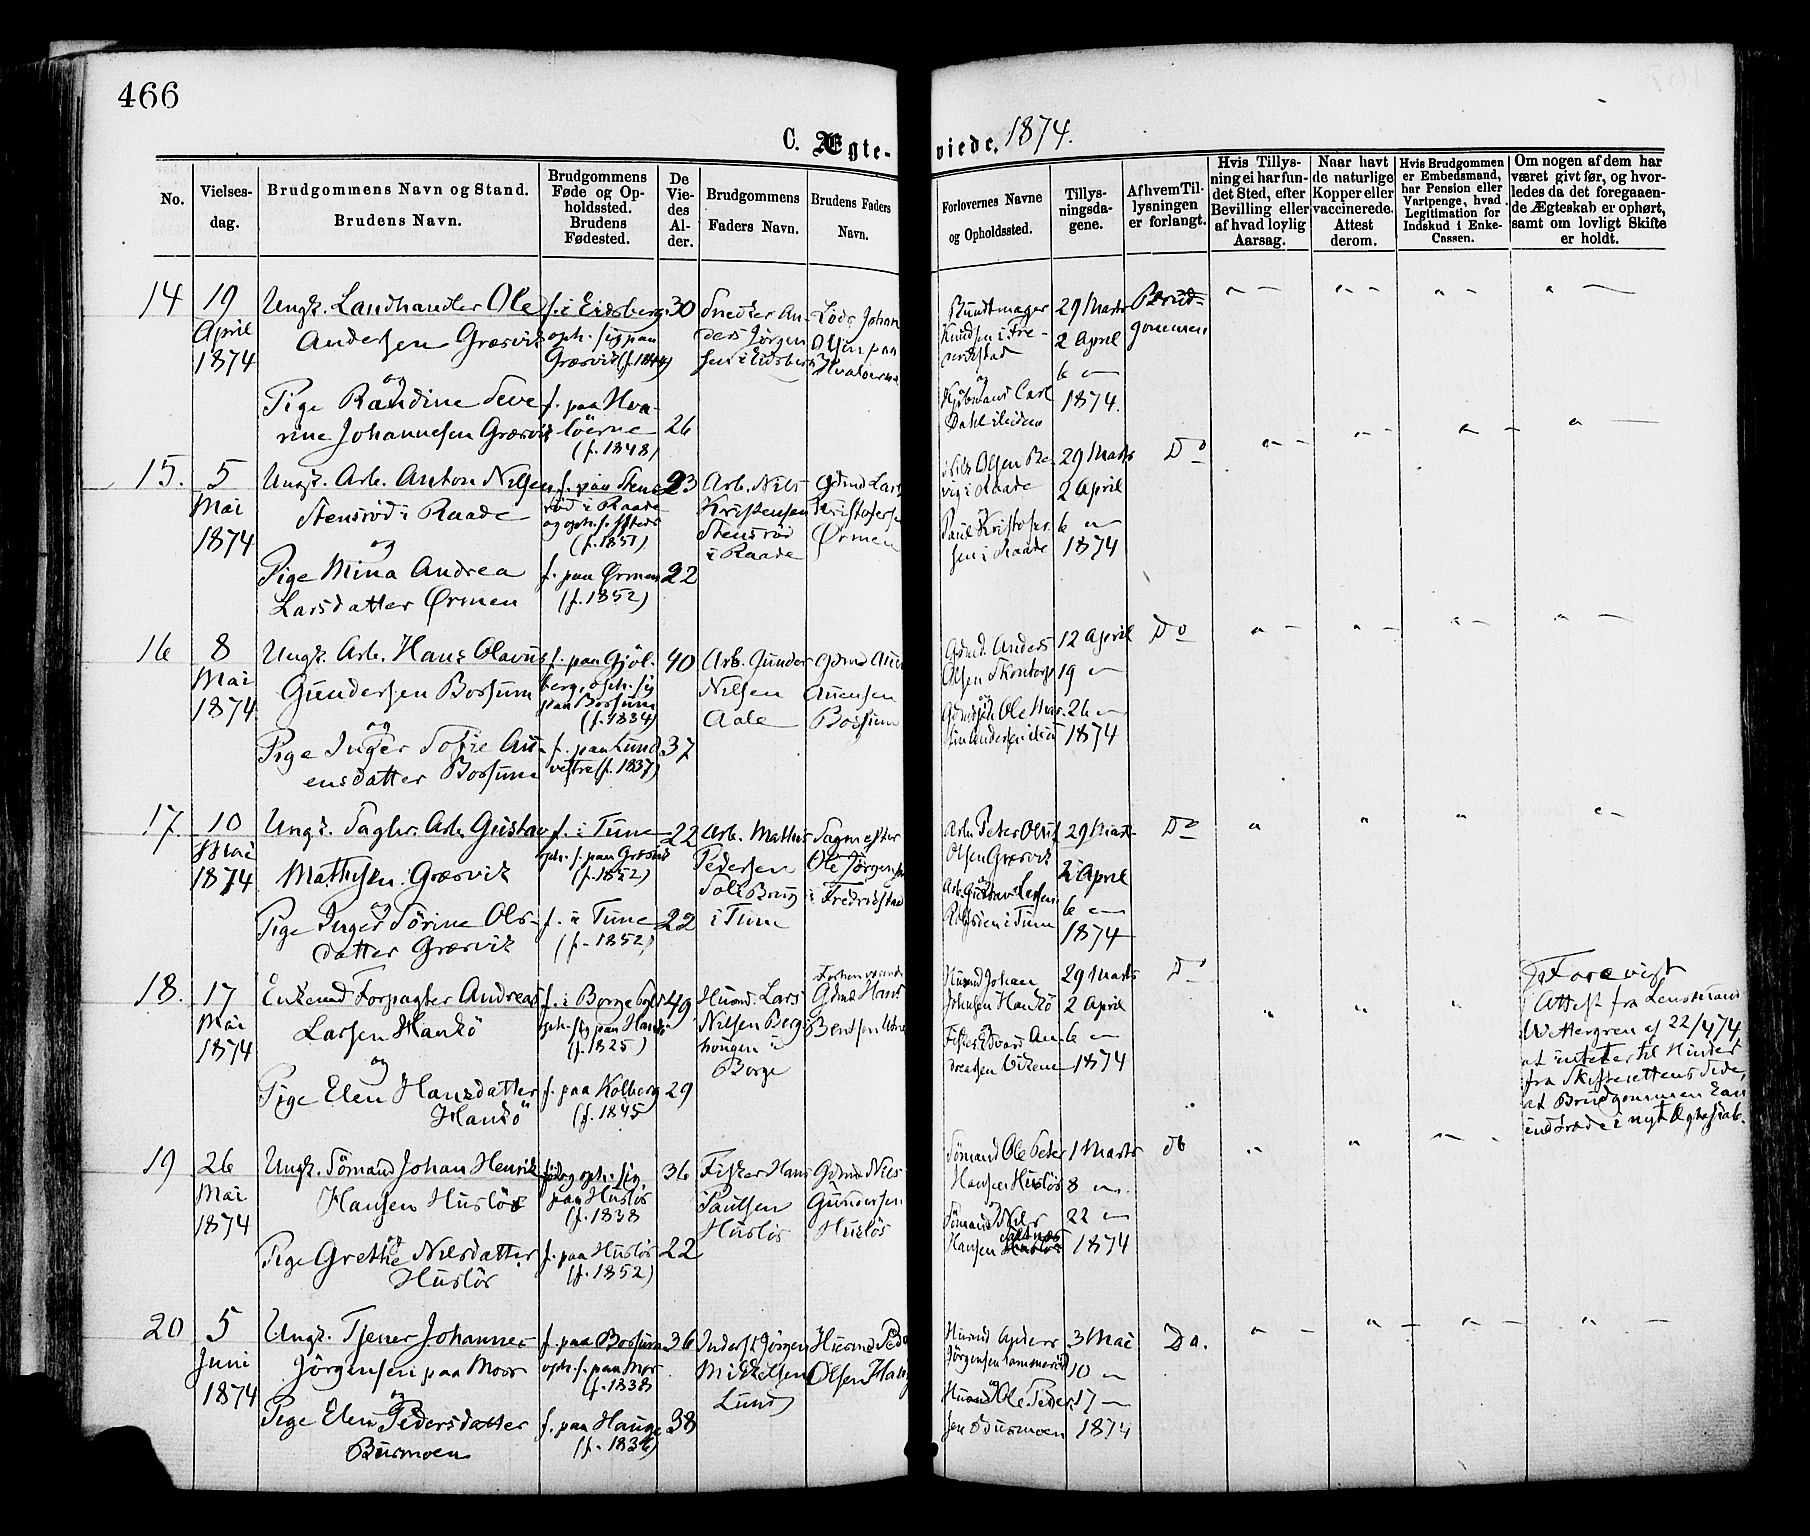 466
C. Ægteviede, 1874.
No.
Vielsesdag.
Brudgommens Navn og Stand.
Brudens Navn.
Brudgommens
Føde og Op-
holdssted.
Brudens
Fødested.
De
Vie-
des
Al-
der.
Brudgommens
Faders Navn.
Brudens Faders
Navn.
Forlovernes Navne
og Opholdssted.
Tillys-
ningsda-
gene.
Af hvem Til-
lysningen
er forlangt.
Hvis Tillys-
ning ei har fun-
det Sted, efter
Bevilling eller
af hvad lovlig
Aarsag.
Naar havt
de naturlige
Kopper eller
vaccinerede.
Attest
derom.
Hvis Brudgommen
er Embedsmand,
har Pension eller
Vartpenge, hvad
Legitimation for
Indskud i Enke-
Cassen.
Om nogen af dem har
været givt før, og hvor-
ledes da det foregaaen-
de Ægteskab er ophørt,
samt om lovligt Skifte
er holdt.
14
19
April
1874
Ungk. Landhandler Ole
Andersen Græsvik
og
Pige Randine Seve
rine Johannesen Græsvik
f. i Eidsberg
oph. sig paa
Græsvik (f. 1844)
f. paa Hva-
löerne
(f. 1848)
30
26
Snedker An-
ders Jørgen
sen i Eidsberg
Lods Johan
Olsen paa
Hvaløerne
Bundtmager
Knudsen i Fre-
derikstad
og
Kjöbmand Carl
Dahl
29 Marts
2 April
6 "
1874.
Brud-
gommen
15.
5
Mai
1874
Ungk. Arb. Anton Nilsen
Stensröd i Raade
og
Pige Mina Andrea
Larsdatter Ørmen
f. paa Stens
röd i Raade
og oph. s. sSteds
(f. 1851)
f. paa Ørmen
(f. 1852)
23
22
Arb. Nils
Kristensen
Stensröd
i Raade
Gdmd Lars
Kristofersen
Ørmen
Nils Olsen Re-
vig i Raade
og
Paul Kristofer-
sen i Raade
29 Marts
2 April
6 "
1874
Do
16
8
Mai
1874
Ungk. Arb. Hans Olavus
Gundersen Bossum
og
Pige Inger Sofie Au-
ensdatter Bossum
f. paa Gjöl-
berg, oph. sig
paa Bossum
(f. 1834)
f. paa Lund
vestre (f. 1837)
40
37
Arb. Gunder
Nilsen
Aale
Gdmd Auen
Auensen
Bossum
Gdmd. Anders
Olsen Skontorp
og
12 April
19 "
26 "
1874
Do
17.
10
Mai
1874
Ungk. Sagbr. Arb. Gustav
Mathisen Græsvik
og
Pige Inger Törine Ols-
datter Græsvik
f. i Tune
oph. s. paa Græsvik
(f. 1852)
f. i Tune
(f. 1852)
22
22
Arb. Mathis
Pedersen
Sole Brug
i Tune
Sagmester
Ole Jörgensen
i Fredrikstad
Arb. Peter Oluf
Olsen Græsvik
og
Arb. Gustav
29 Marts
2 April
6 "
1874
Do
18.
17
Mai
1874
Enkemd Forpagter Andreas
Larsen Hankö
og
Pige Elen Hansdatter
Hankö
f. i Borge
oph. sig paa Hankö
(f. 1825)
f. paa Kolberg
(f. 1845
49
29
Husmd. Lars
Nilsen Berg-
hougen i
Borge
Forhenværende
Gdmd Hans
Bentsen
Husmd Johan
Johnsen Hankö
og
Fisker Edvard An-
dreassen Vikene
29 Marts
2 April
6 "
1874
Do
Forevist
Attest fra Lensmand
Wettergren af 22/4 74
at intet er til Hinder
fra Skifterettens Side,
at Brudgommen kan
indtræde i nyt Ægteskab.
19
26
Mai
1874
Ungk. Sömand Johan Henrik
Hansen Huslös
og
Pige Grethe Nilsdatter
Huslös
f. og oph. sig.
paa Huslös
(f. 1838
f. paa Huslös
(f. 1852)
36
22
Fisker Hans
Paulsen
Huslös
Gdmd Nils
Gundersen
Huslös
Sömand Ole Peter
Hansen Huslös
og
Sömand Nils
Hansen
1 Marts
8 "
22 "
1874
Do
20
5
Juni
1874
Ungk. Tjener Johannes
Jörgensen paa Moss
og
Pige Elen Pedersdatter
Busmoen
f. paa Bossum
oph. s. paa Mos
(f. 1838
f. paa Hauge
(f. 1836)
36
38
Inderst Jörgen
Mikkelsen
Lund
Husmd Peder
Olsen Hauge
Husmd Anders
Jörgensen
og
Husmd Ole Peder-
sen Busmoen
3 Mai
10 "
17 "
1874
Do.